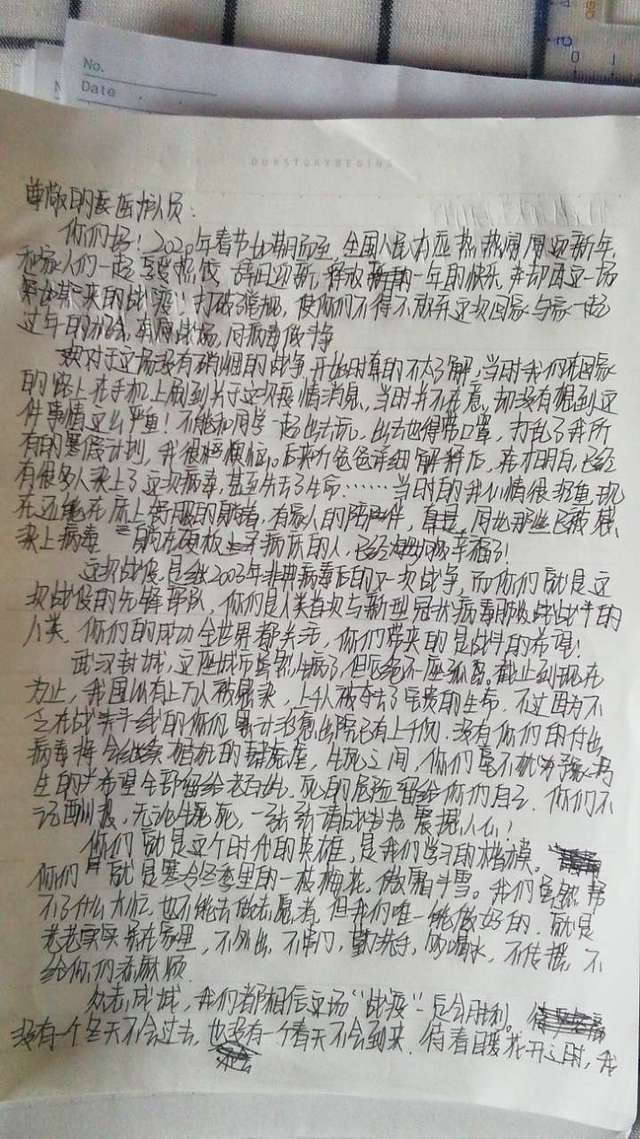 No.
Date
OURSTORYBEGINS
尊敬的医护人员：
你们好！2020年春节如期而至，全国人民本应热热闹闹迎新年，
和家人们一起 热饭 辞旧迎新，释放新的一年的快乐，并却因这一场
来的战疫！打破了 ，使你们不得不放弃这次回家与家人一起
过年的机会，再 战场，同病毒做斗争
对于这场没有硝烟的战争，开始时真的不太了解，当时我们在回家
的路上在手机上刷到关于这次疫情消息，当时并不在意，却没有想到这
件事情这么严重！不能和同学一起出去玩，出去也得带口罩，打乱了我所
有的寒假计划，我很 烦恼。后来听爸爸详细解释后，我才明白，已经
有很多人染上了这次病毒，甚至失去了生命……当时的我心情很沉重，现
在还能在床上舒服的躺着，有家人的陪伴，但是，同比那些已被感
染上病毒 的在硬板 病床的人，已经 幸福了！
这次战役是继2003年非典病毒后的又一次战争，而你们就是这
次战役的先锋部队，你们是人类首次与新型冠状病毒 战斗的
人类，你们的成功全世界都关注，你们带来的是战斗的希望！
武汉封城，这座城市虽然生病了，但它绝不是座孤岛，截止到现在
为止，我国 有上万人被感染，上千人被夺去了宝贵的生命，不过因为不
在战斗一线的你们 累计治愈出院已有上千例，没有你们的付出
病毒将会继续 的肆虐，生死之间，你们毫不犹豫
生的希望全部留给老百姓，死的危险留给你们自己，你们不
记酬报，无论生死，一张张请战书 震撼人心！
你们就是这个时代的英雄，是我们学习的楷模。
你们就是寒冷冬季里的一枝梅花，傲霜斗雪。我们虽然帮
不了什么大忙，也不能去做志愿者，但我们唯一能做好的，就是
老老实实呆在家里，不外出，不串门，勤洗手，多喝水，不传播，不
给你们添麻烦
众志成城，我们都相信这场“战疫”一定会胜利。
没有一个冬天不会过去，也没有一个春天不会到来，待春暖花开之时，我